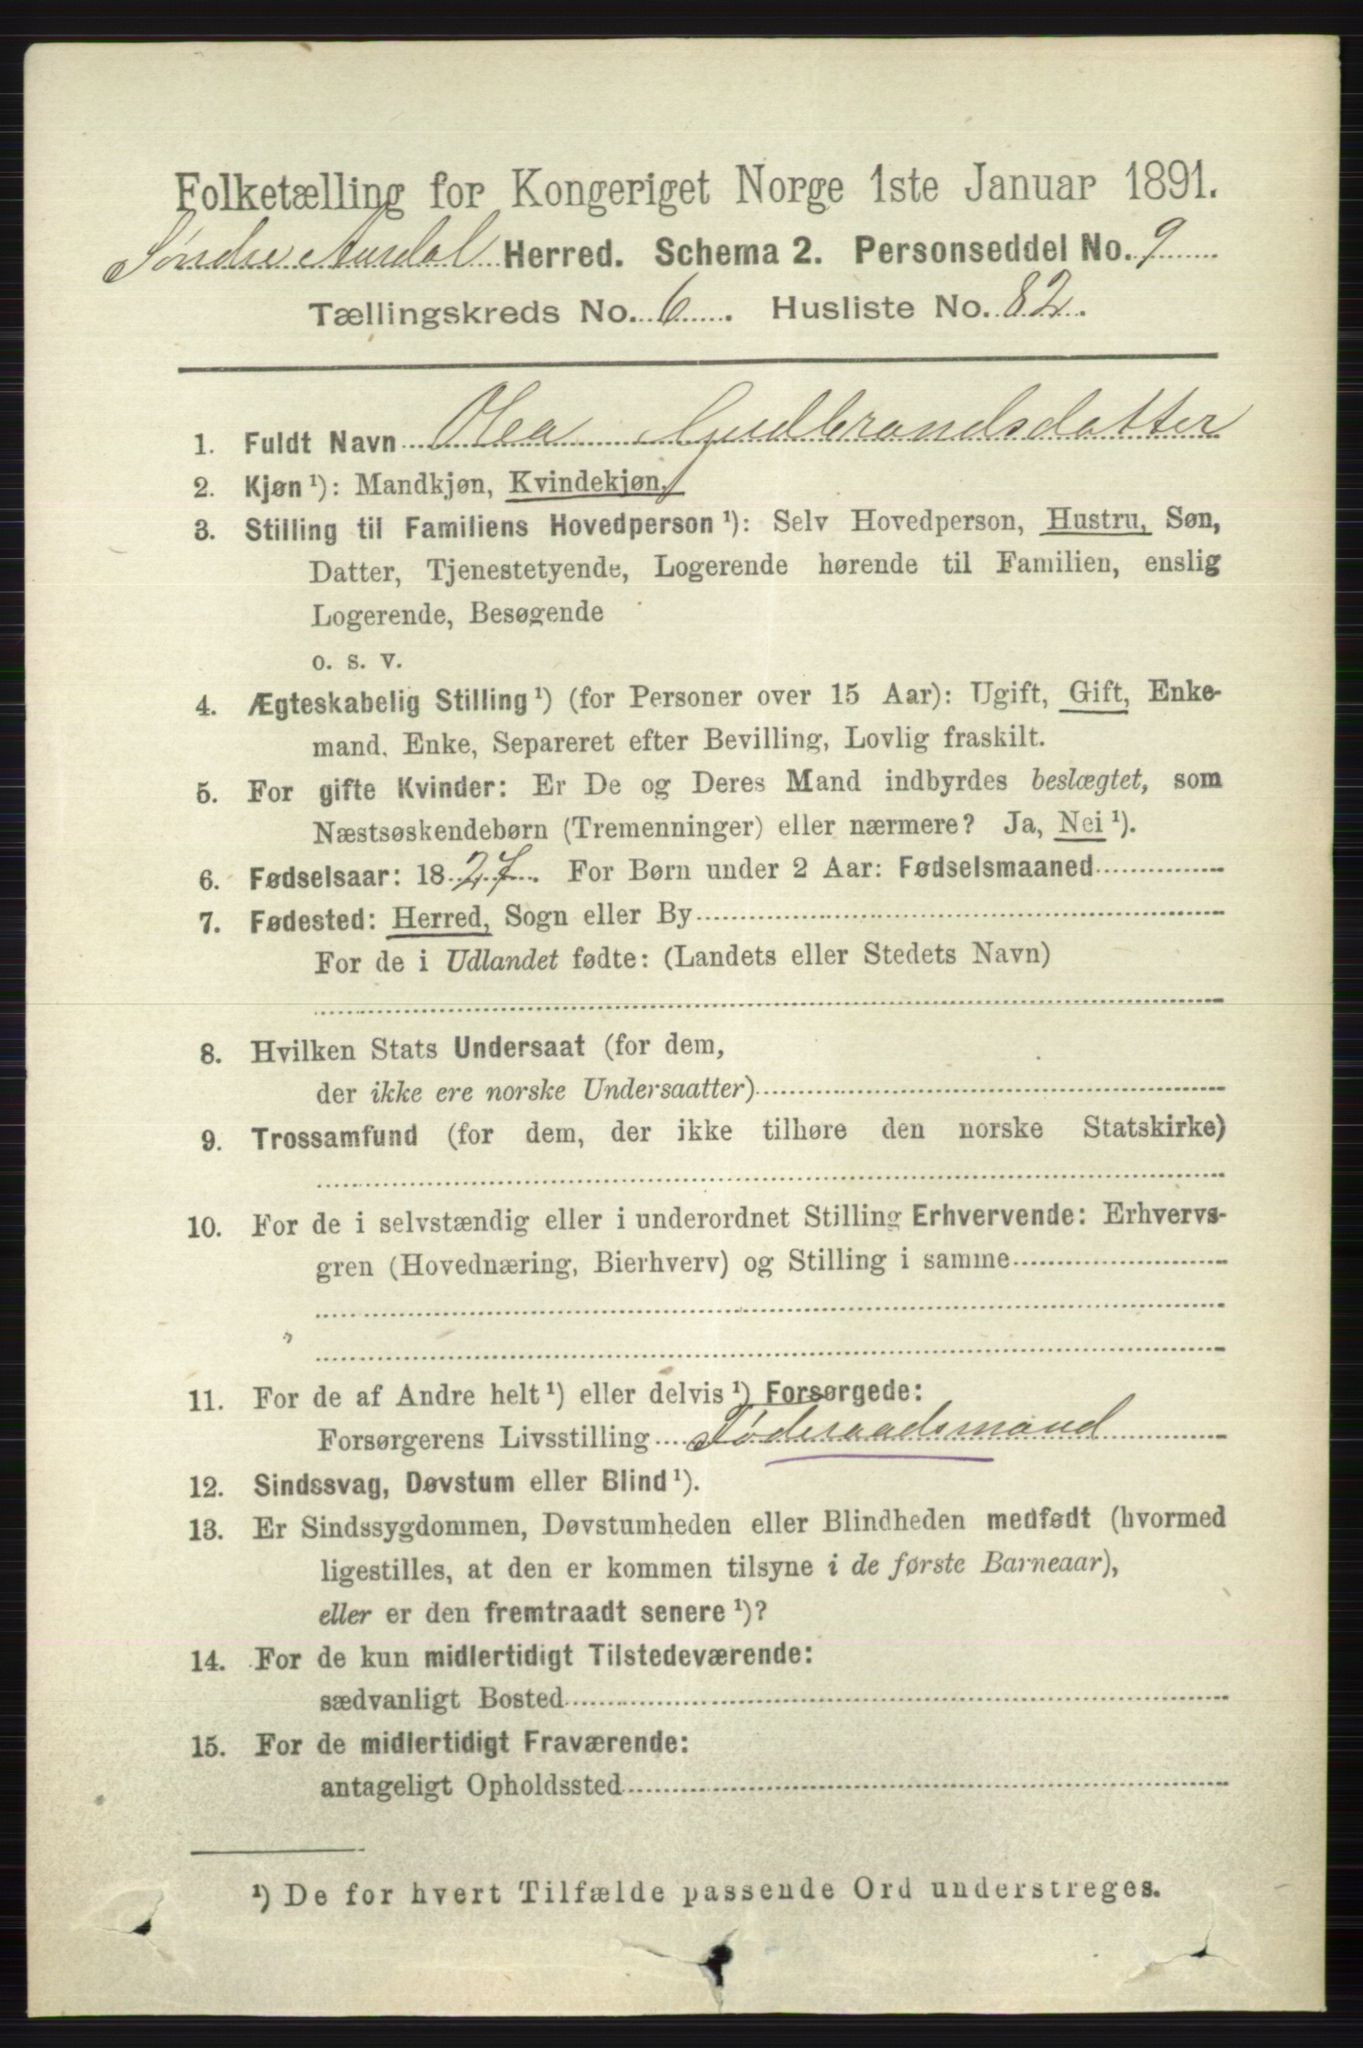 Folketælling for Kongeriget Norge 1ste Januar 1891.
Søndre Aurdal Herred. Schema 2. Personseddel No. 9
Tællingskreds No. 6. Husliste No. 82.
1. Fuldt Navn Olea Gudbrandsdatter
2. Kjøn ¹): Mandkjøn, Kvindekjøn.
3. Stilling til Familiens Hovedperson ¹): Selv Hovedperson, Hustru, Søn,
Datter, Tjenestetyende, Logerende hørende til Familien, enslig
Logerende, Besøgende
o. s. v.
4. Ægteskabelig Stilling ¹) (for Personer over 15 Aar): Ugift, Gift, Enke-
mand, Enke, Separeret efter Bevilling, Lovlig fraskilt.
5. For gifte Kvinder: Er De og Deres Mand indbyrdes beslægtet, som
Næstsøskendebørn (Tremenninger) eller nærmere? Ja, Nei ¹).
6. Fødselsaar: 1827. For Børn under 2 Aar: Fødselsmaaned
7. Fødested: Herred, Sogn eller By
For de i Udlandet fødte: (Landets eller Stedets Navn)
8. Hvilken Stats Undersaat (for dem,
der ikke ere norske Undersaatter)
9. Trossamfund (for dem, der ikke tilhøre den norske Statskirke)
10. For de i selvstændig eller i underordnet Stilling Erhvervende: Erhvervs-
gren (Hovednæring, Bierhverv) og Stilling i samme
11. For de af Andre helt ¹) eller delvis ¹) Forsørgede:
Forsørgerens Livsstilling Føderaadsmand
12. Sindssvag, Døvstum eller Blind ¹).
13. Er Sindssygdommen, Døvstumheden eller Blindheden medfødt (hvormed
ligestilles, at den er kommen tilsyne i de første Barneaar),
eller er den fremtraadt senere ¹)?
14. For de kun midlertidigt Tilstedeværende:
sædvanligt Bosted
15. For de midlertidigt Fraværende:
antageligt Opholdssted
¹) De for hvert Tilfælde passende Ord understreges.